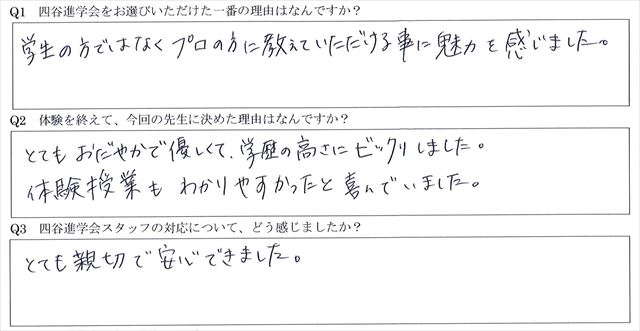 Q1 四谷進学会をお選びいただけた一番の理由はなんですか？
学生の方ではなくプロの方に教えていただける事に魅力を感じました。
Q2 体験を終えて、今回の先生に決めた理由はなんですか？
とてもおだやかで優しくて、学歴の高さにビックリしました。
体験授業もわかりやすかったと喜んでいました。
Q3 四谷進学会スタッフの対応について、どう感じましたか？
とても親切で安心できました。